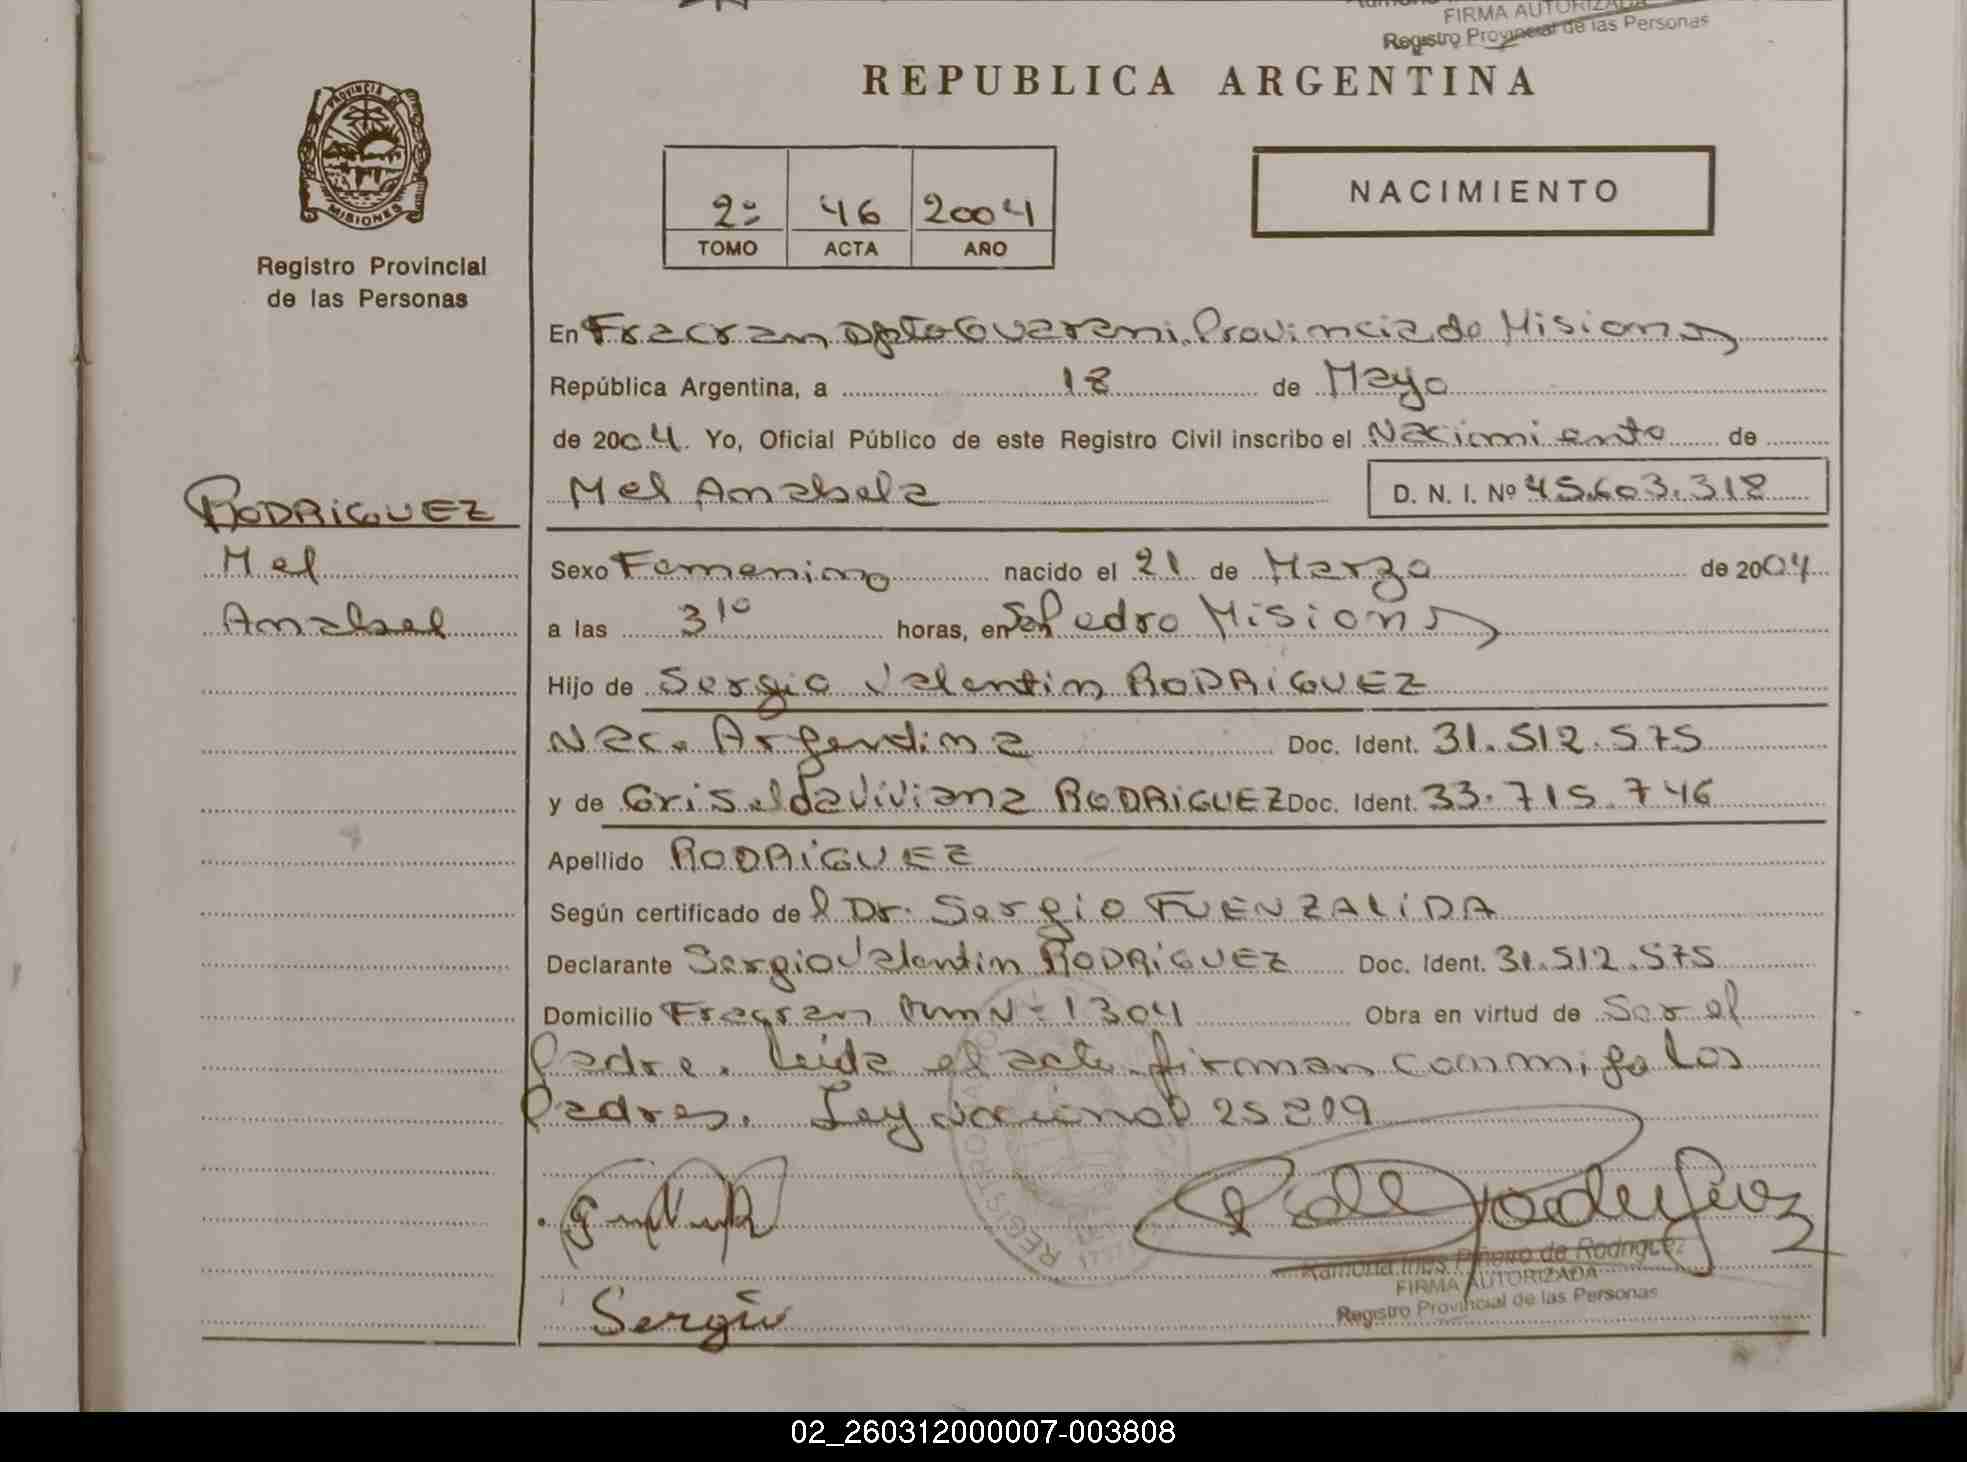 FIRMA AUTORIZADA
Registro Provincial de las Personas
REPUBLICA ARGENTINA
PROVINCIA DE
MISIONES
Registro Provincial
de las Personas
2º 46 2004
TOMO ACTA AÑO
NACIMIENTO
En Fracran Dpto Guarani. Provincia de Misiones
República Argentina, a 18 de Mayo
de 2004. Yo, Oficial Público de este Registro Civil inscribo el Nacimiento de
Mel Anabela D. N. I. Nº 45.603.318
RODRIGUEZ
Mel
Anabel
Sexo Femenino nacido el 21 de Marzo de 2004
a las 3 10 horas, en San Pedro Misiones
Hijo de Sergio Valentin RODRIGUEZ
Nac. Argentina Doc. Ident. 31.512.575
y de Griselda Viviana RODRIGUEZ Doc. Ident. 33.715.746
Apellido RODRIGUEZ
Según certificado de l Dr. Sergio FUENZALIDA
Declarante Sergio Valentin RODRIGUEZ Doc. Ident. 31.512.575
Domicilio Fragran Nº 1304 Obra en virtud de Ser el
Padre. Leida el acta firman conmigo los
Padres. Ley Nacional 25819
REGISTRO
Rodriguez
Ramona Ines Piñeiro de Rodriguez
FIRMA AUTORIZADA
Registro Provincial de las Personas
Sergio
02_260312000007-003808